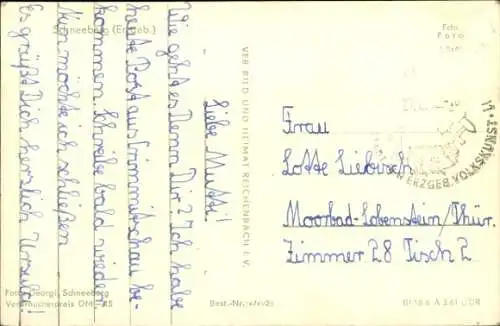 Schneeberg (Erzgeb.)
Liebe Mutti!
Wie geht es Denn Dir? Ich habe
heute Post aus Crimmitschau be-
kommen. Schreibe bald wieder.
Nun möchte ich schließen
Es grüßt Dich herzlich Ursula!
VEB BILD UND HEIMAT REICHENBACH I. V.
Foto
ERZGEB. VOLKSKUNST
Frau
Lotte Liebisch
Moorbad-Lobenstein/Thür.
Zimmer 28 Tisch 2
Foto: Georgi, Schneeberg
Verbraucherpreis DM
Best.-Nr.